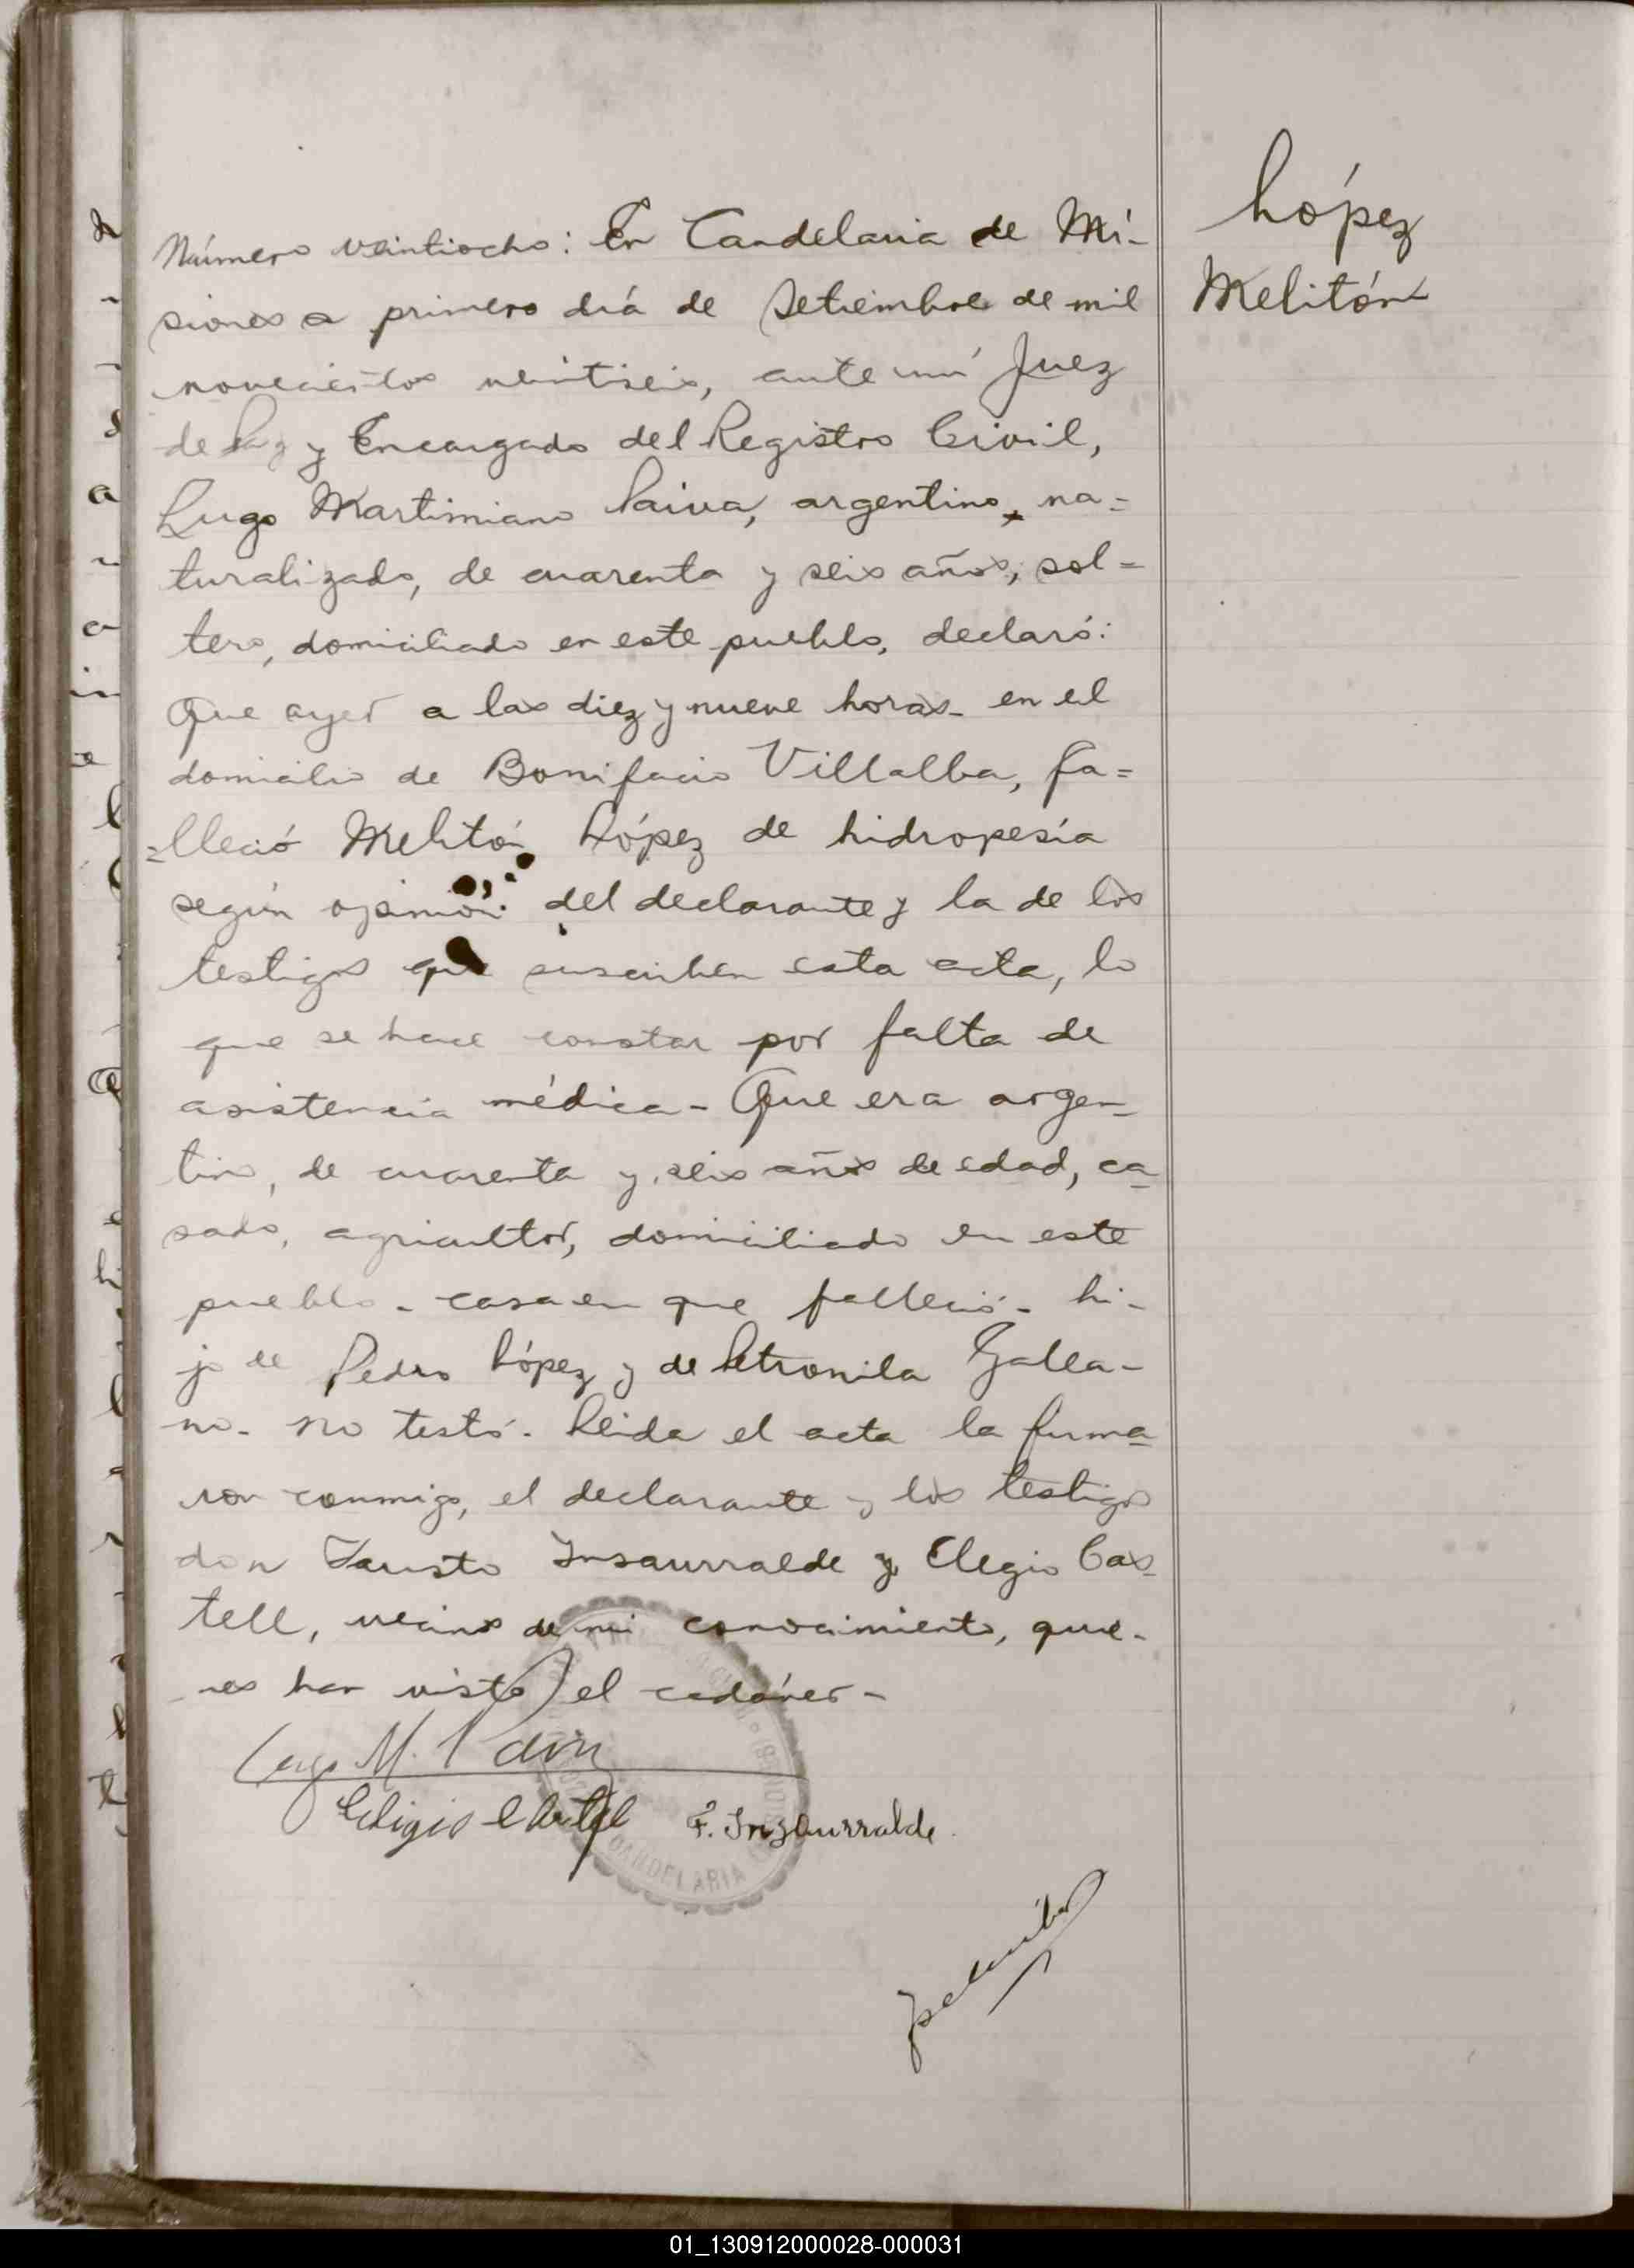 López
Melitón
Número veintiocho: En Candelaria de Mi-
siones a primero día de Setiembre de mil
novecientos veintiseis, ante mí Juez
de Paz y Encargado del Registro Civil,
Lugo Martimiano Paiva, argentino, na=
turalizado, de cuarenta y seis años, sol=
tero, domiciliado en este pueblo, declaró:
Que ayer a las diez y nueve horas - en el
domicilio de Bonifacio Villalba, fa=
=lleció Melitón López de hidropesía
según opinión del declarante y la de los
testigos que suscriben esta acta, lo
que se hace constar por falta de
asistencia médica - Que era argen-
tino, de cuarenta y seis años de edad, ca-
sado, agricultor, domiciliado en este
pueblo - casa en que falleció - hi-
jo de Pedro López y de Petronila Galea-
no - No testó - Leida el acta la firma-
ron conmigo, el declarante y los testigos
don Fausto Insaurralde y Elegio Cas-
tell, vecinos de mi conocimiento, quie-
nes han visto el cadáver -
Lugo M. Paiva
Eligio Castell F. Inzaurralde
CANDELARIA
01_130912000028-000031